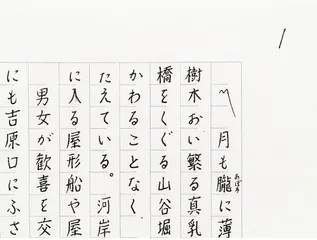 1
〽 月も朧に薄
おぼろ
樹木おい繁る真乳
橋をくぐる山谷堀
かわることなく
たえている。河岸
に入る屋形船や屋
男女が歓喜を交
にも吉原口にふさ